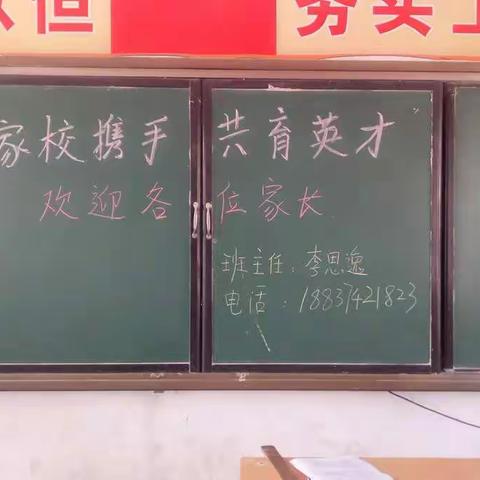 但 夯实
家校携手 共育英才"
欢迎各位家长
班主任:李思逸
电话:18837421823